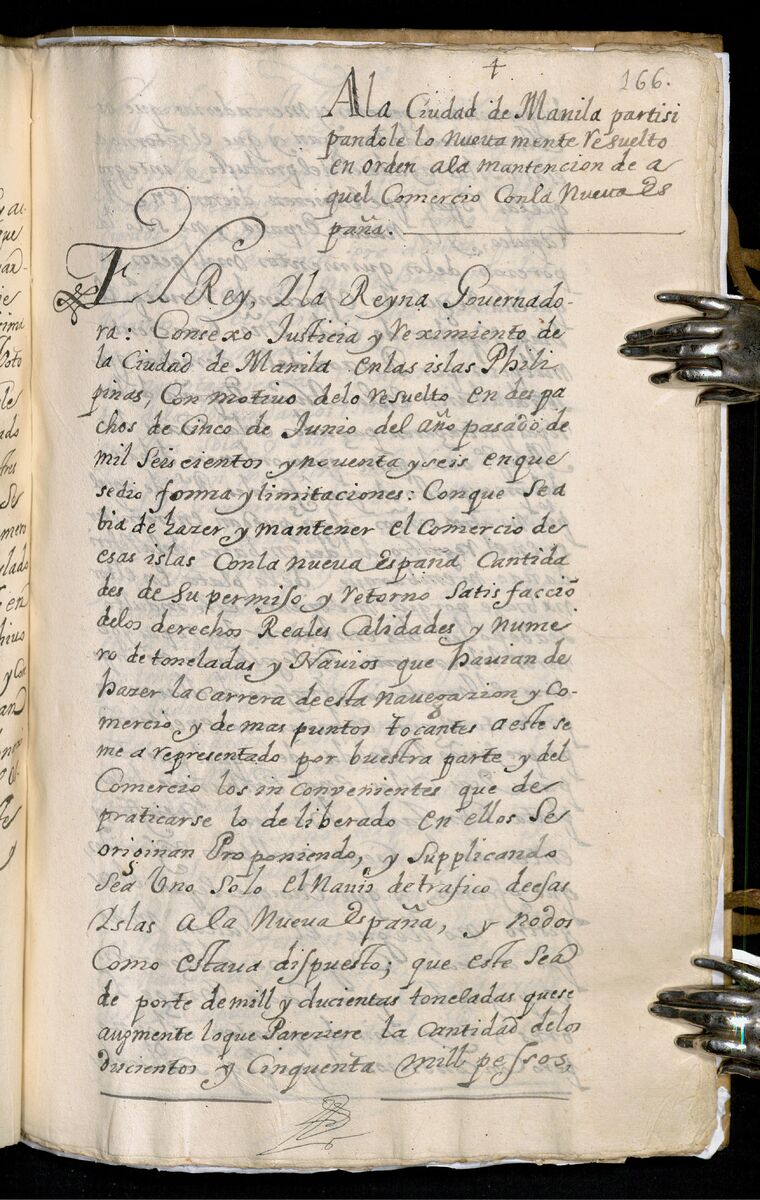 166.
A la Ciudad de Manila partisi
pandole lo nueva mente resuelto
en orden ala mantencion de a
quel Comercio Conla Nueva Es
paña.
El Rey, Yla Reyna Governado-
ra: Consexo Justicia y reximiento de
la Ciudad de Manila enlas islas Phili
pinas, Con motivo delo resuelto en des pa
chos de Cinco de Junio del año pasado de
mil Seiscientos y noventa y seis en que
sedio forma y limitaciones: Conque Se a
bia de hazer y mantener el Comercio de
esas islas Conla nueva España Cantida
des de Su permiso y retorno Satisfacciō
delos derechos Reales Calidades y nume
ro de toneladas y Navios que havian de
hazer la carrera de esta navegazion y Co-
mercio, y de mas puntos tocantes a este se
me a representado por buestra parte y del
Comercio los in convenientes que de
praticarse lo de liberado en ellos Se
originan Pro poniendo, y Supplicando
Sea Uno Solo el Navio de trafico de esas
Yslas a la Nueva España, y no dos
Como estava dispuesto; que este Sea
de porte de mill y ducientas toneladas que se
augmente lo que Pareziere la Cantidad de los
ducientos y Cinquenta mill pessos,